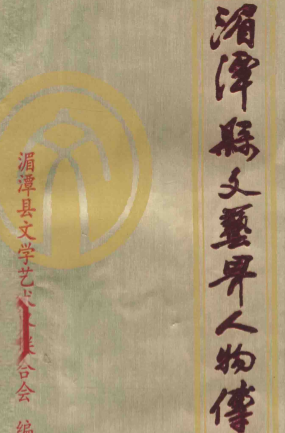 湄潭縣文藝界人物傳
湄潭县文学艺术联合会 编